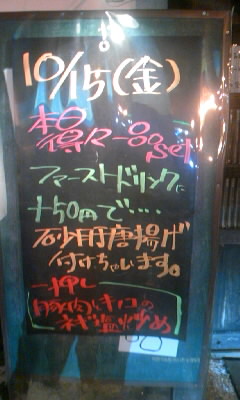 10/15(金)
本日
得々一品set
ファーストドリンクに
+50円で・・・・
砂肝唐揚げ
付けちゃいます。
一押し
豚肉とキノコの
ネギ塩炒め